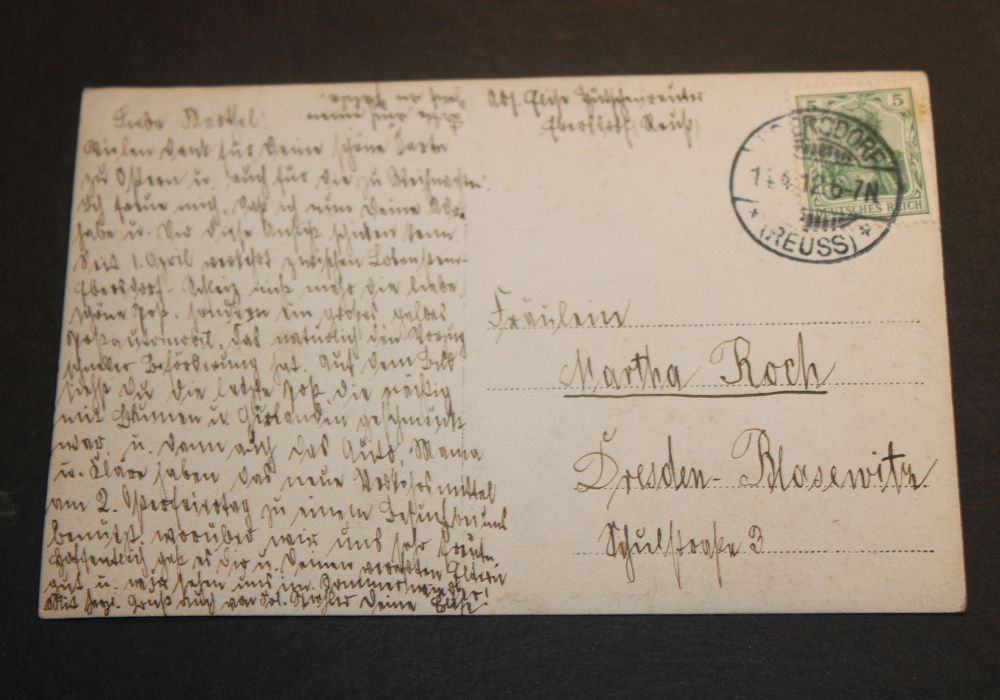 Liebe Martel!
Vielen Dank für Deine schöne Karte
zu Ostern u. auch für die zu Weihnachten.
Ich freue mich, daß ich nun Deine Adr.
habe u. Dir diese Ansicht schicken kann.
Seit 1. April verkehrt zwischen Lobenstein-
Ebersdorf-Schleiz nicht mehr die liebe
schöne Post, sondern ein großes gelbes
Postautomobil, das natürlich den Vorzug
schneller Beförderung hat. Auf dem Bild
siehst Du die letzte Post, die
mit Blumen u. Girlanden geschmückt
war, u. dann auch das Auto. Mama
u. Kläre haben das neue Verkehrsmittel
am 2. Osterfeiertag zu einem Besuch bei uns
benutzt, worüber wir uns sehr freuten.
Hoffentlich geht es Dir u. Deinen verehrten Eltern
gut u. wir sehen uns im Sommer wieder!
Mit herzl. Gruß auch von Deine Elise.
Abs. Elise
Ebersdorf, Reuß
5 5
DEUTSCHES REICH
EBERSDORF
14.4.12.6-7N
* (REUSS) *
Fräulein
Martha Koch
Dresden-Blasewitz
Schulstraße 3